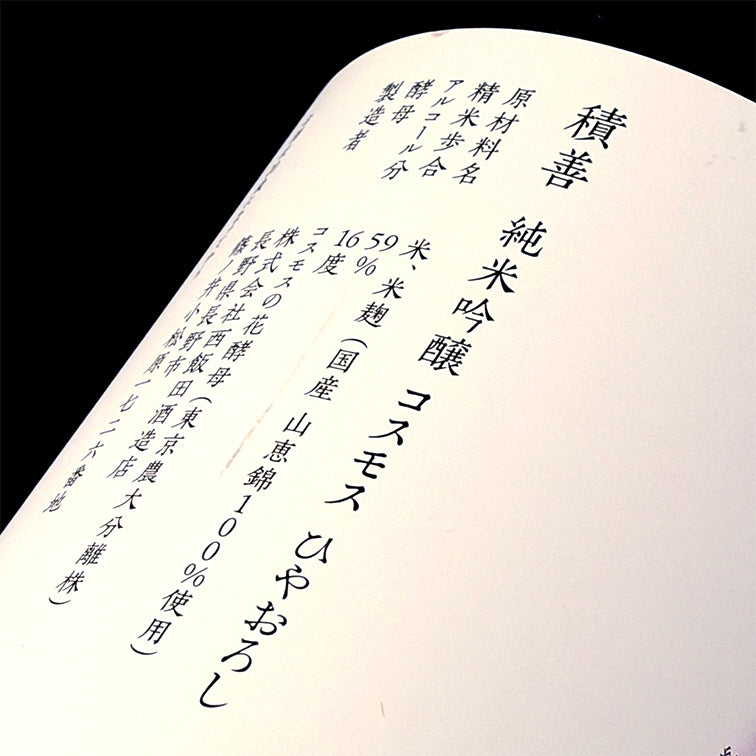 積善 純米吟醸 コスモス ひやおろし
原材料名 米、米麹（国産 山恵錦100%使用）
精米歩合 59%
アルコール分 16度
酵母 コスモスの花酵母（東京農大分離株）
製造者 株式会社西飯田酒造店
長野県長野市
篠ノ井小松原一七二六番地